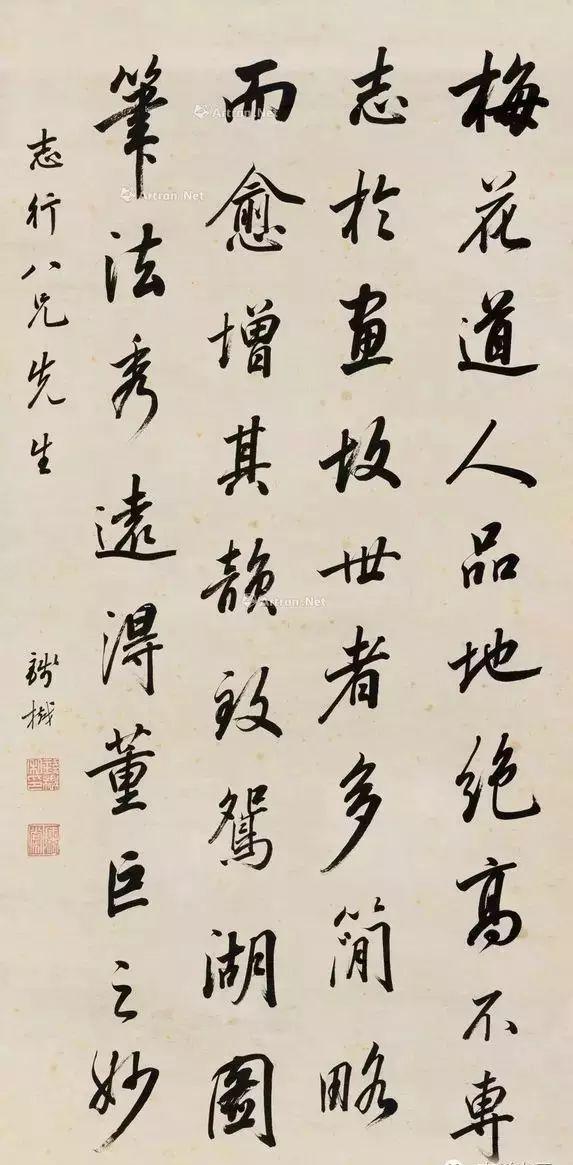 梅花道人品地絕高不専
志於畫故世者多簡略
而愈增其韻致鴛湖圖
筆法秀遠得董巨之妙
志行八兄先生
錢樾
Artron.Net
Artron.Net
Artron.Net